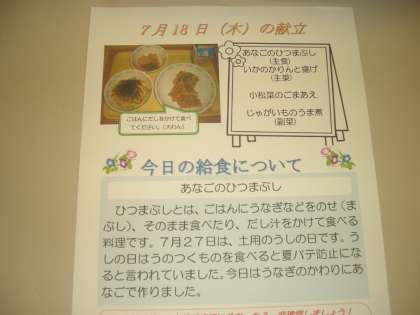 7月18日（木）の献立
あなごのひつまぶし
（主食）
いかのかりんと揚げ
（主菜）
小松菜のごまあえ
じゃがいものうま煮
（副菜）
ごはんにだしをかけて食べ
てください。（大わん）
今日の給食について
あなごのひつまぶし
ひつまぶしとは、ごはんにうなぎなどをのせ（ま
ぶし）、そのまま食べたり、だし汁をかけて食べる
料理です。7月27日は、土用のうしの日です。う
しの日はうのつくものを食べると夏バテ防止にな
ると言われていました。今日はうなぎのかわりにあ
なごで作りました。